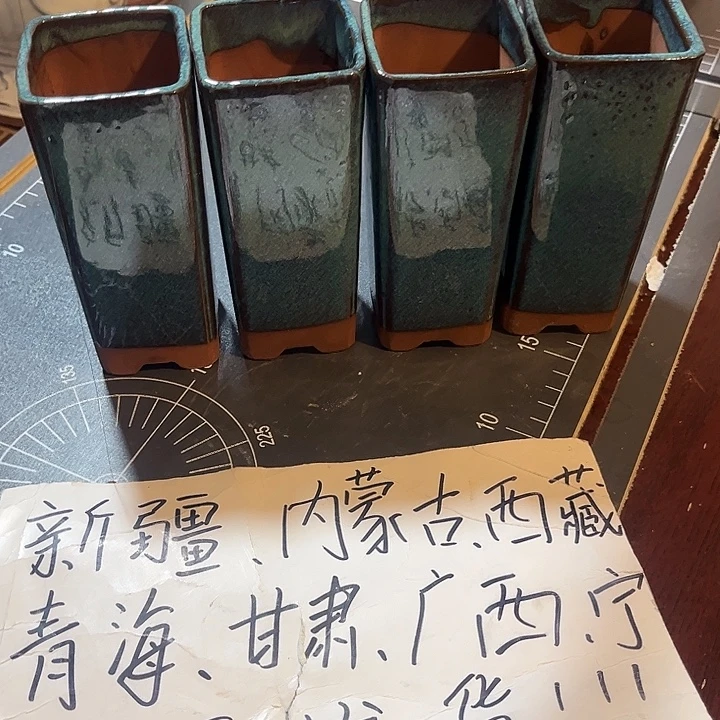 10
135
225
15
10
新疆、内蒙古、西藏
青海、甘肃、广西、宁
发货!!!